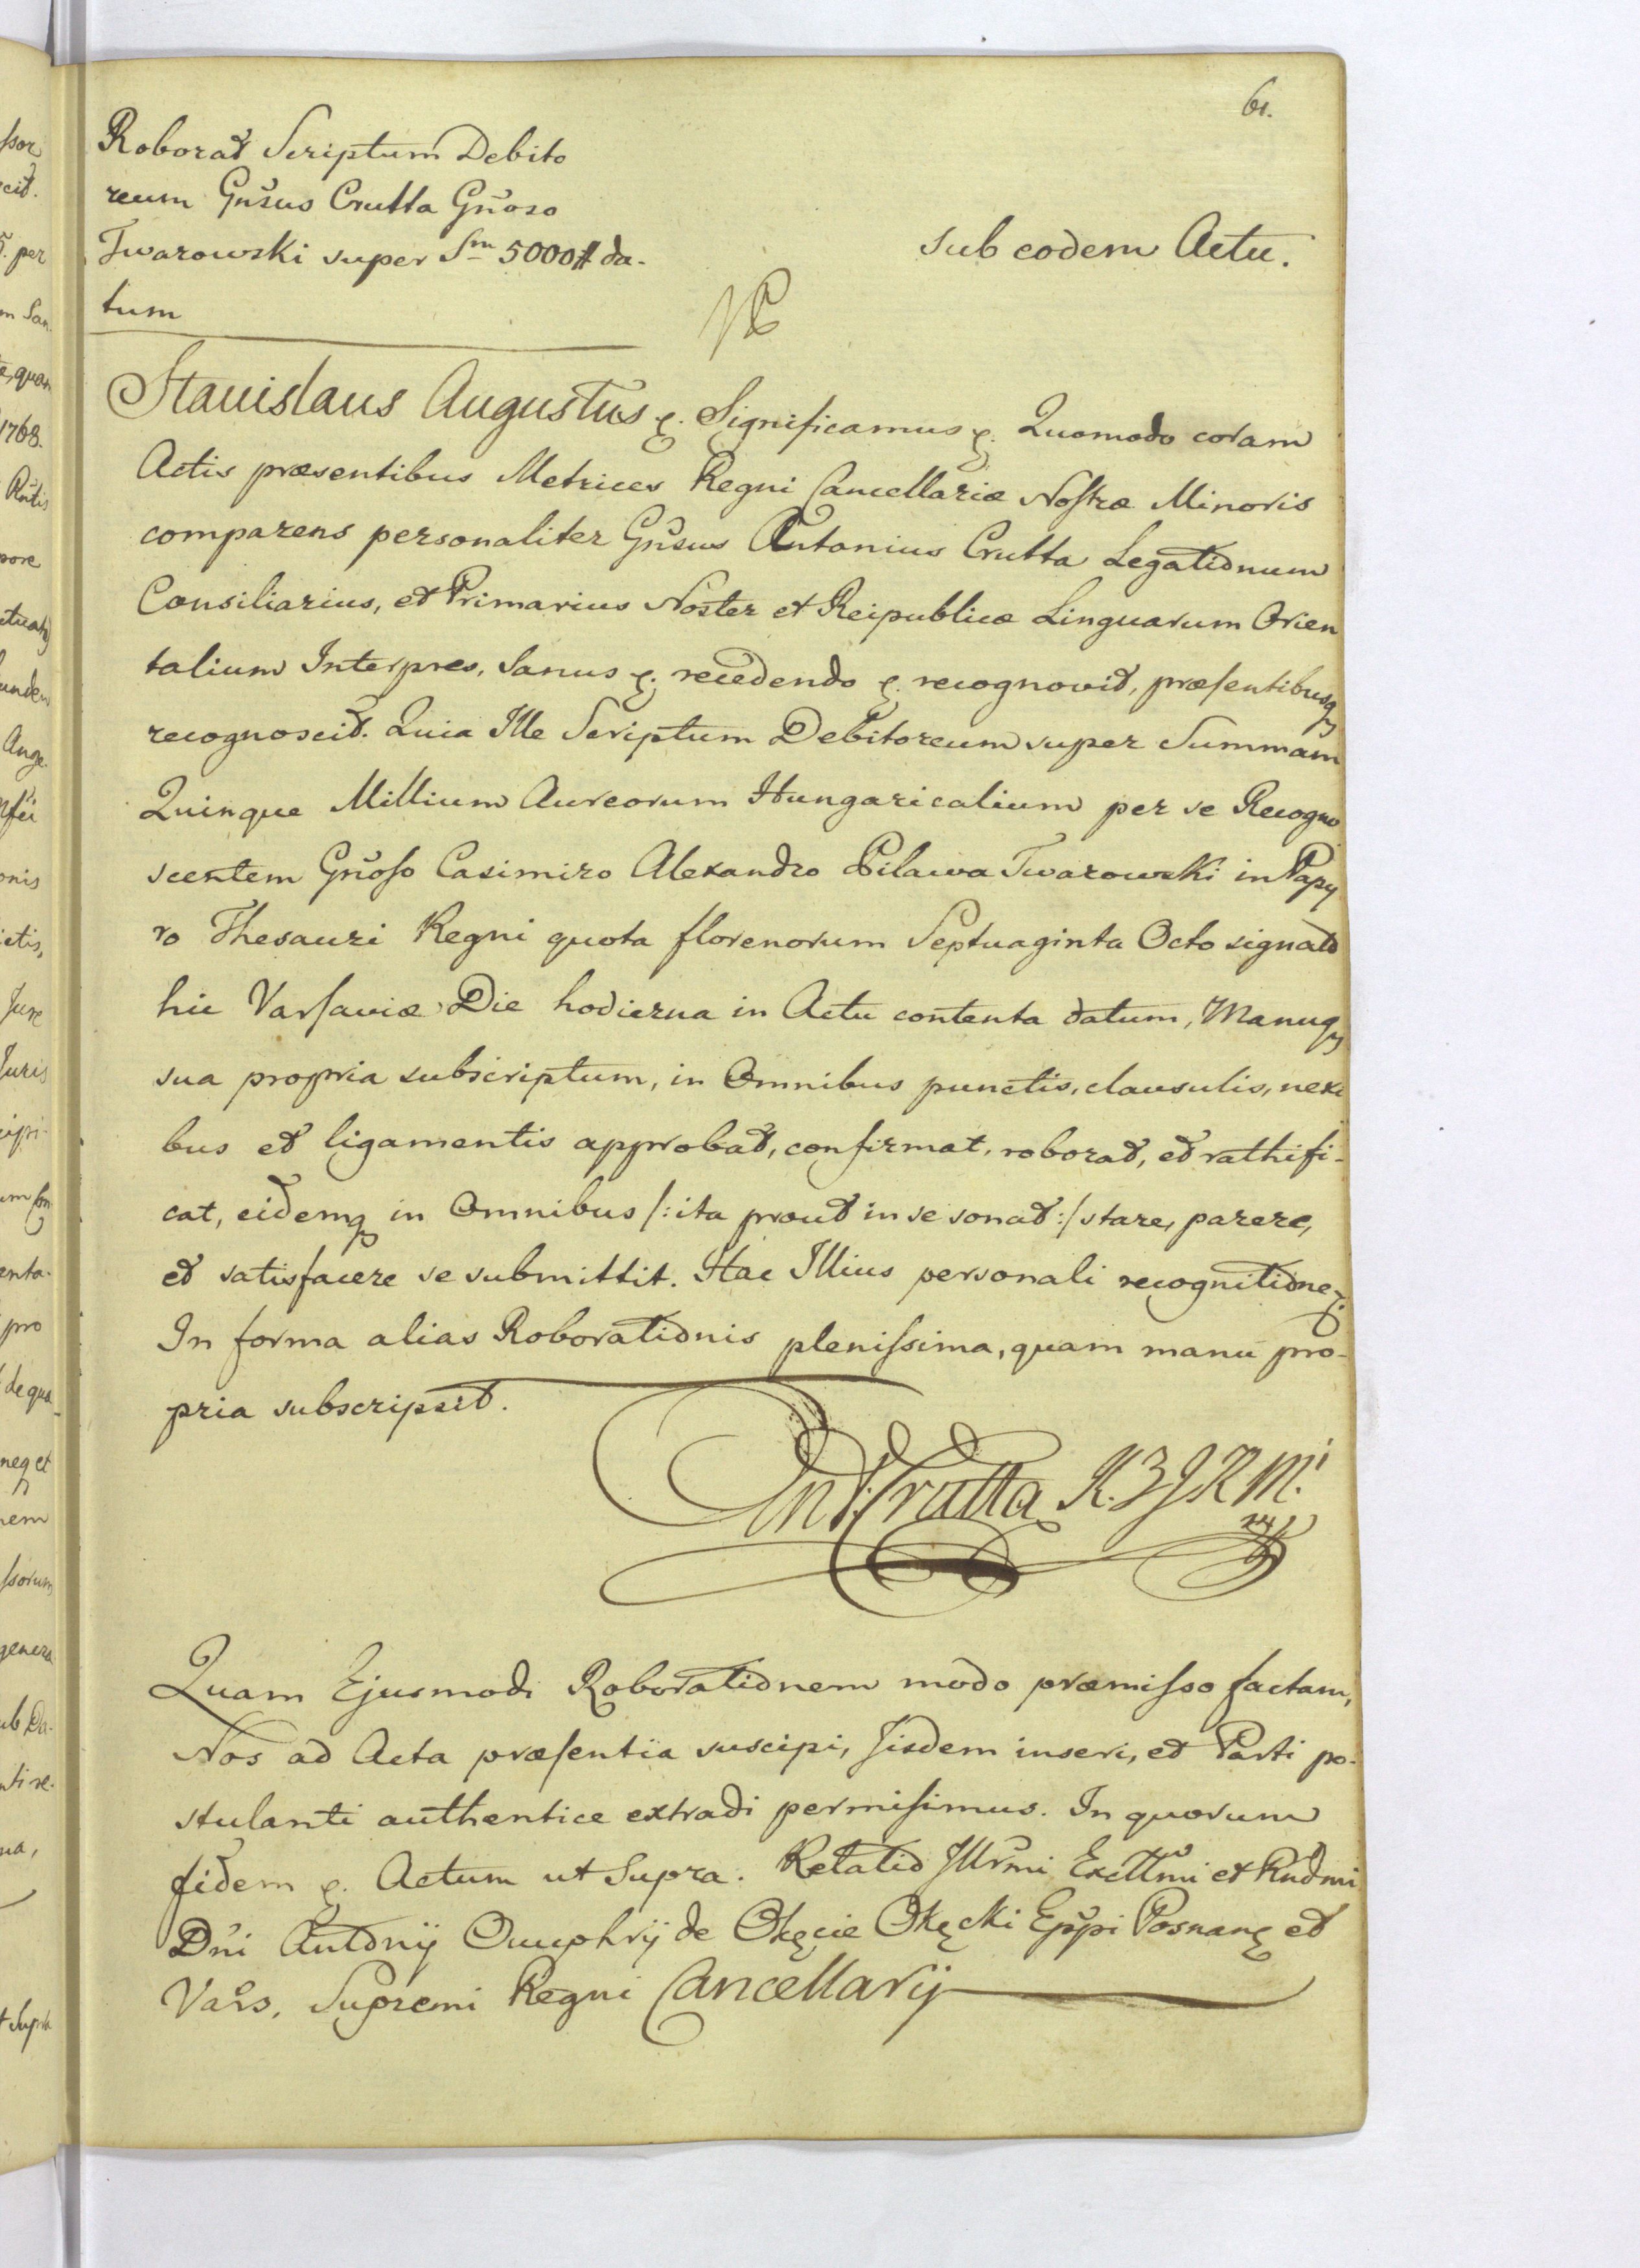 61.
Roborat Scriptum Debito
reum Gnsus Crutta Gnoso
Twarowski super Sm 5000 # da-
tum
sub eodem Actu.
Stanislaus Augustus &. Significamus &. Quomodo coram
Actis præsentibus Metrices Regni Cancellariæ Nostræ Minoris
comparens personaliter Gnsus Antonius Crutta Legationum
Consiliarius, et Primarius Noster et Reipublicæ Linguarum Orien
talium Interpres, Sanus &. recedendo &. recognovit, præsentibusq
recognoscit. Quia Ille Scriptum Debitoreum super Summam
Quinque Millium Aureorum Hungaricalium per se Recogno
scentem Gnoso Casimiro Alexandro Pilawa Twarowski in Papy
ro Thesauri Regni quota florenorum Septuaginta Octo signato
hic Varsaviæ Die hodierna in Actu contenta datum, Manuq
sua propria subscriptum, in Omnibus punctis, clausulis, nexi
bus et ligamentis approbat, confirmat, roborat, et rathifi-
cat, eidemq in Omnibus /: ita prout in se sonat :/ stare, parere,
et satisfacere se submittit. Hac Illius personali recognitione &.
In forma alias Roborationis plenissima, quam manu pro-
pria subscripsit.
Ant Crutta K. Z J K M.
Quam Ejusmodi Roborationem modo præmisso factam,
Nos ad Acta præsentia suscipi, Jisdem inseri, et Parti po-
stulanti authentice extradi permisimus. In quorum
fidem &. Actum ut Supra. Relatio Jllrmi Excttmi et Rndmi
Dni Antonij Onuphrij de Okęcie Okęcki Eppi Posnan & et
Vars. Supremi Regni Cancellarij